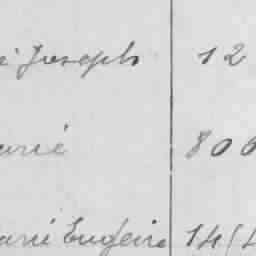 Joseph 12
arie 80
arie Eugenie 14